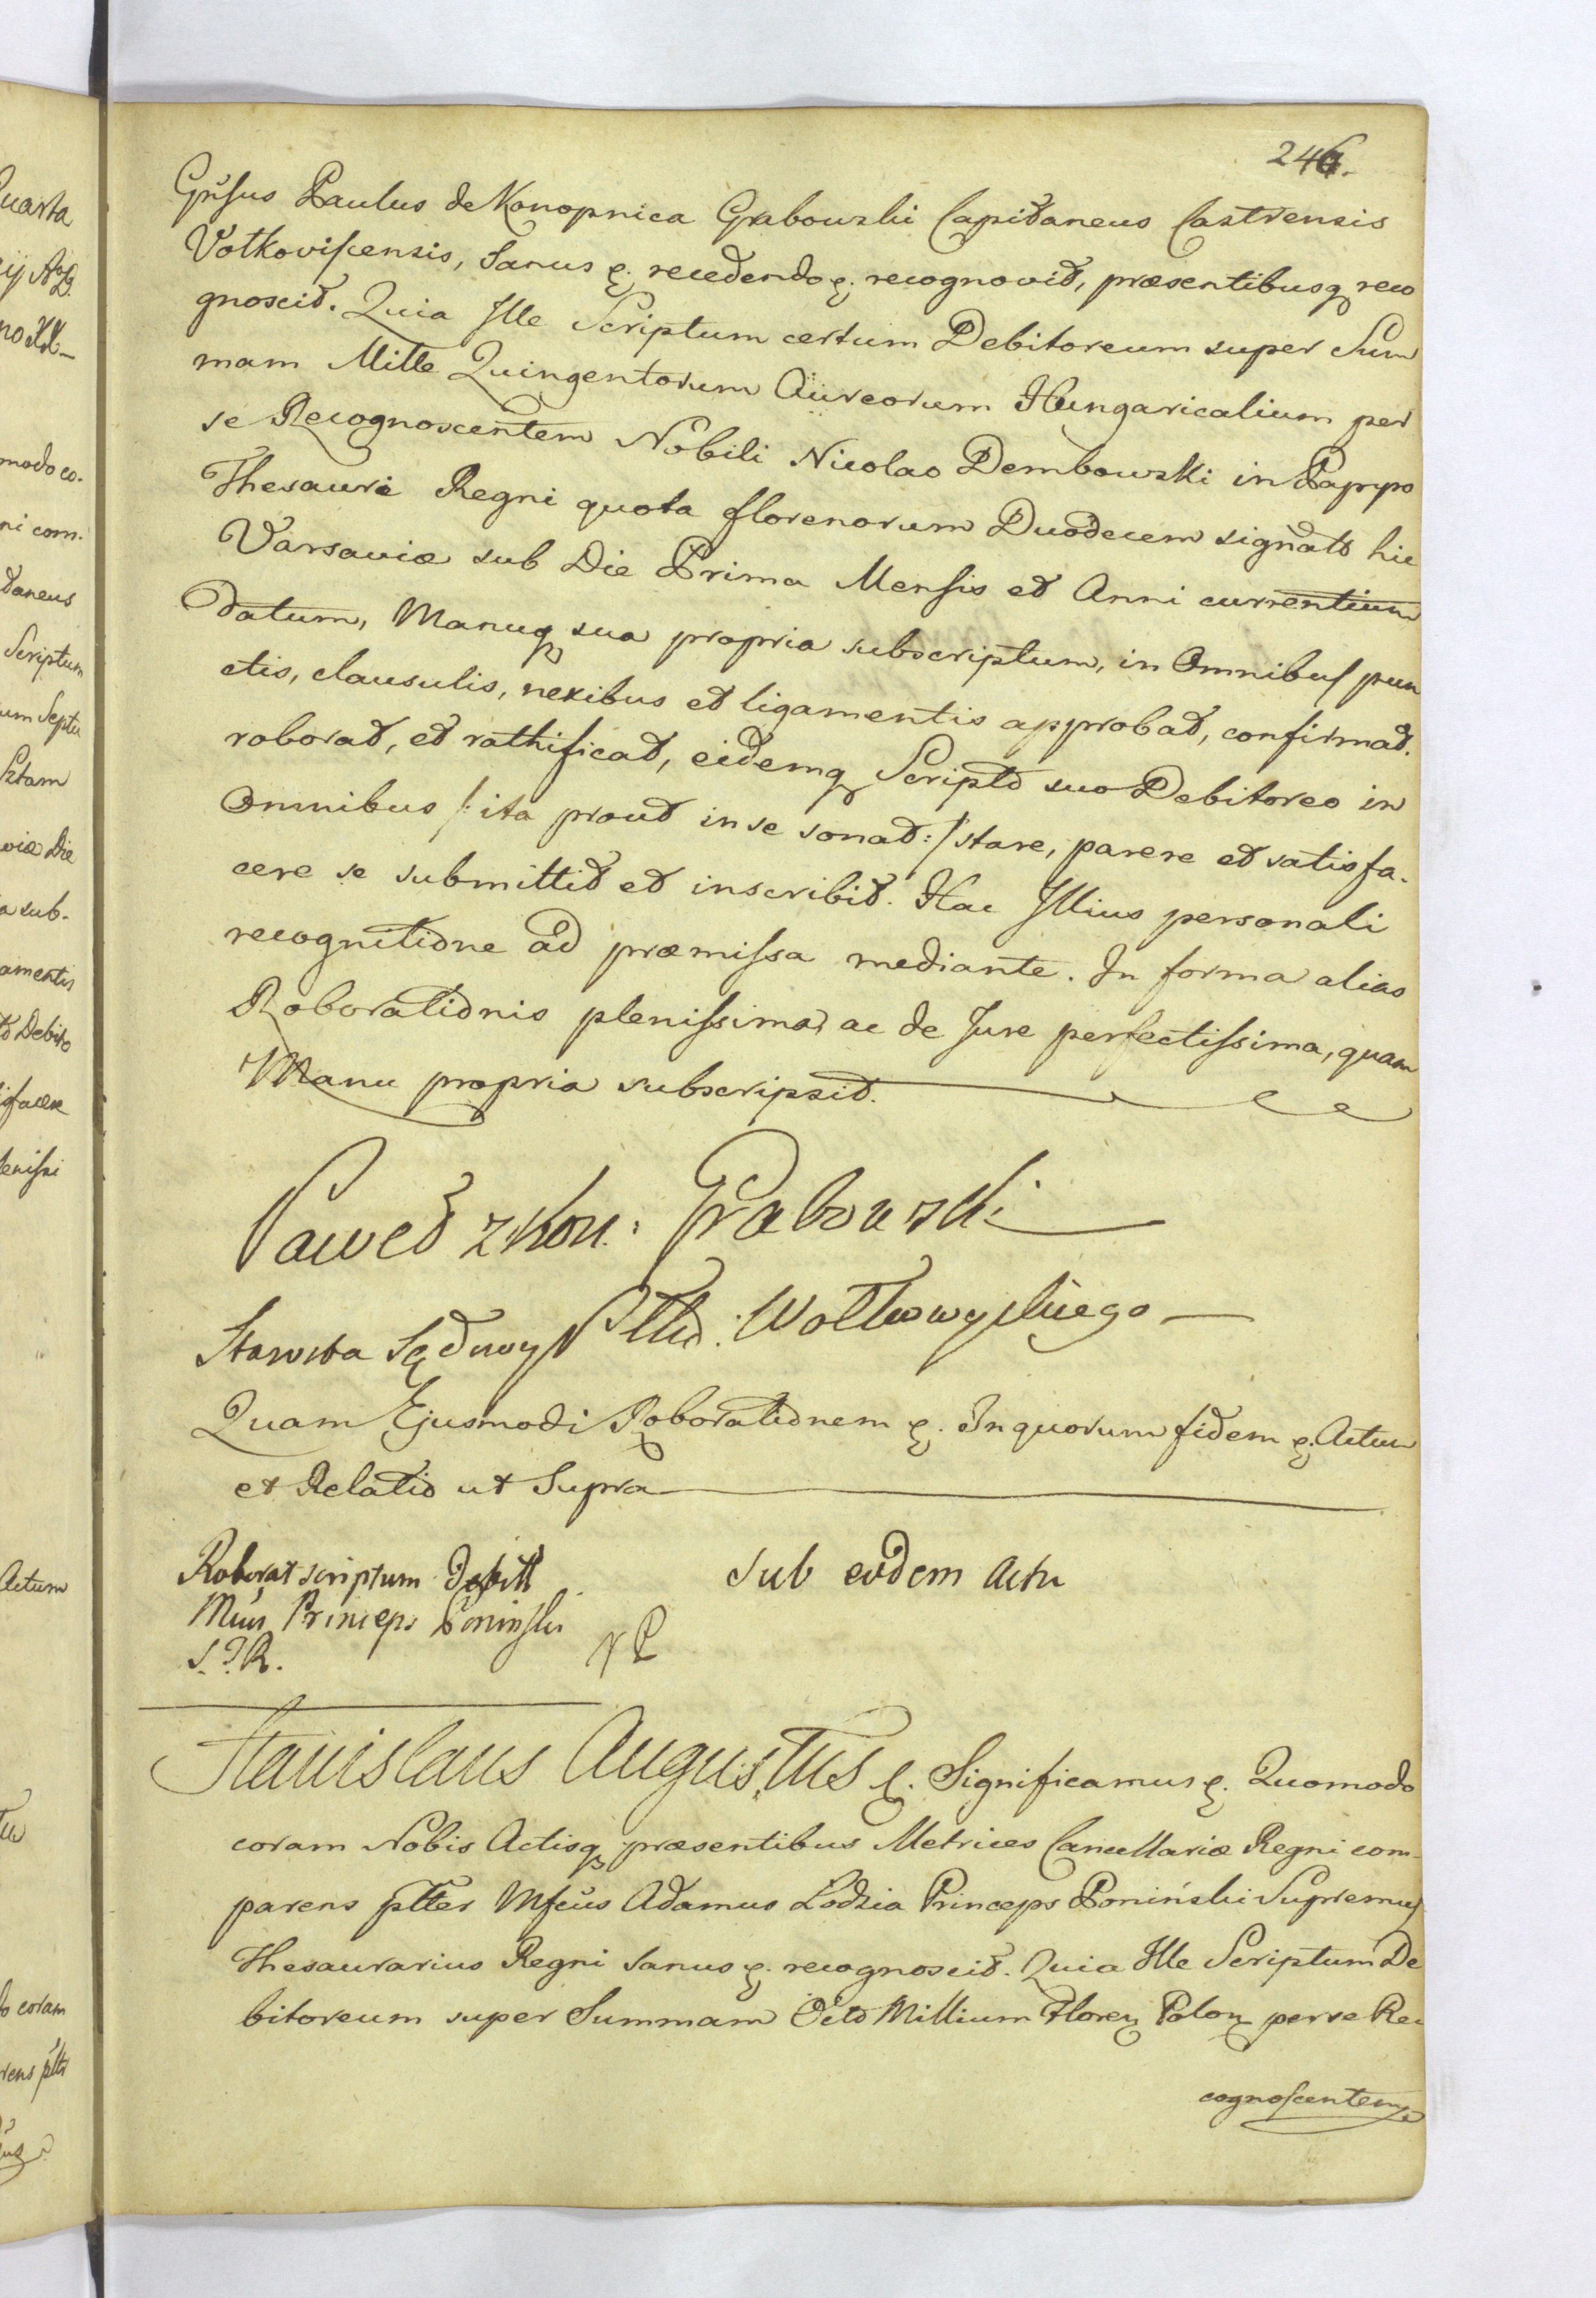 246.
Gnsus Paulus de Konopnica Grabowski Capitaneus Castrensis
Volkoviscensis, Sanus etc. recedendo etc. recognovit, præsentibusq reco
gnoscit. Quia Ille Scriptum certum Debitoreum super Sum
mam Mille Quingentorum Aureorum Hungaricalium per
se Recognoscentem Nobili Nicolao Dembowski in Papyro
Thesauri Regni quota florenorum Duodecem signato hic
Varsaviæ sub Die Prima Mensis et Anni currentium
datum, Manuq sua propria subscriptum, in Omnibus pun
ctis, clausulis, nexibus et ligamentis approbat, confirmat.
roborat, et rathificat, eidemq Scripto suo Debitoreo in
Omnibus /: ita prout in se sonat :/ stare, parere et satisfa-
cere se submittit et inscribit. Hac Illius personali
recognitione ad præmissa mediante. In forma alias
Roborationis plenissima, ac de Jure perfectissima, quam
Manu propria subscripsit.
Paweł z Kon: Grabowski
Starosta Sądowy Ptu: Wołkowyskiego
Quam Ejusmodi Roborationem etc. In quorum fidem etc. Actum
et Relatio ut Supra
Roborat scriptum Debitt Sub eodem Actu
Princeps Poninski
S.T.R. NP
Stanislaus Augustus etc. Significamus etc. Quomodo
coram Nobis Actisq præsentibus Metrices Cancellariæ Regni com-
parens pltter Mfcus Adamus Lodzia Princeps Poniński Supremus
Thesaurarius Regni Sanus etc. recognoscit. Quia Ille Scriptum De
bitoreum super Summam Octo Millium Floren Polon per se Re
cognoscentem